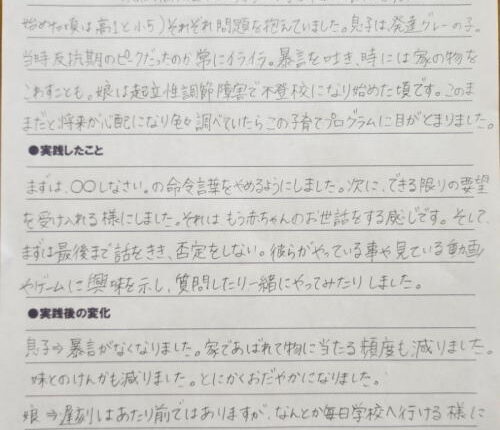 始めた頃は高1と小5)それぞれ問題を抱えていました。息子は、発達グレーの子。
当時反抗期のピークだったのか常にイライラ。暴言を吐き、時には家の物を
こわすことも。娘は起立性調節障害で不登校になり始めた頃です。このま
まだと将来が心配になり色々調べていたらこの子育てプログラムに目がとまりました。
●実践したこと
まずは、〇〇しなさい。の命令言葉をやめるようにしました。次に、できる限りの要望
を受け入れる様にしました。それはもう赤ちゃんのお世話をする感じです。そして、
まずは最後まで話をきき、否定をしない。彼らがやっている事や見ている動画
やゲームに興味を示し、質問したり一緒にやってみたりしました。
●実践後の変化
息子⇒暴言がなくなりました。家であばれて物に当たる頻度も減りました。
妹とのけんかも減りました。とにかくおだやかになりました。
娘⇒遅刻はあたり前ではありますが、なんとか毎日学校へ行ける様に